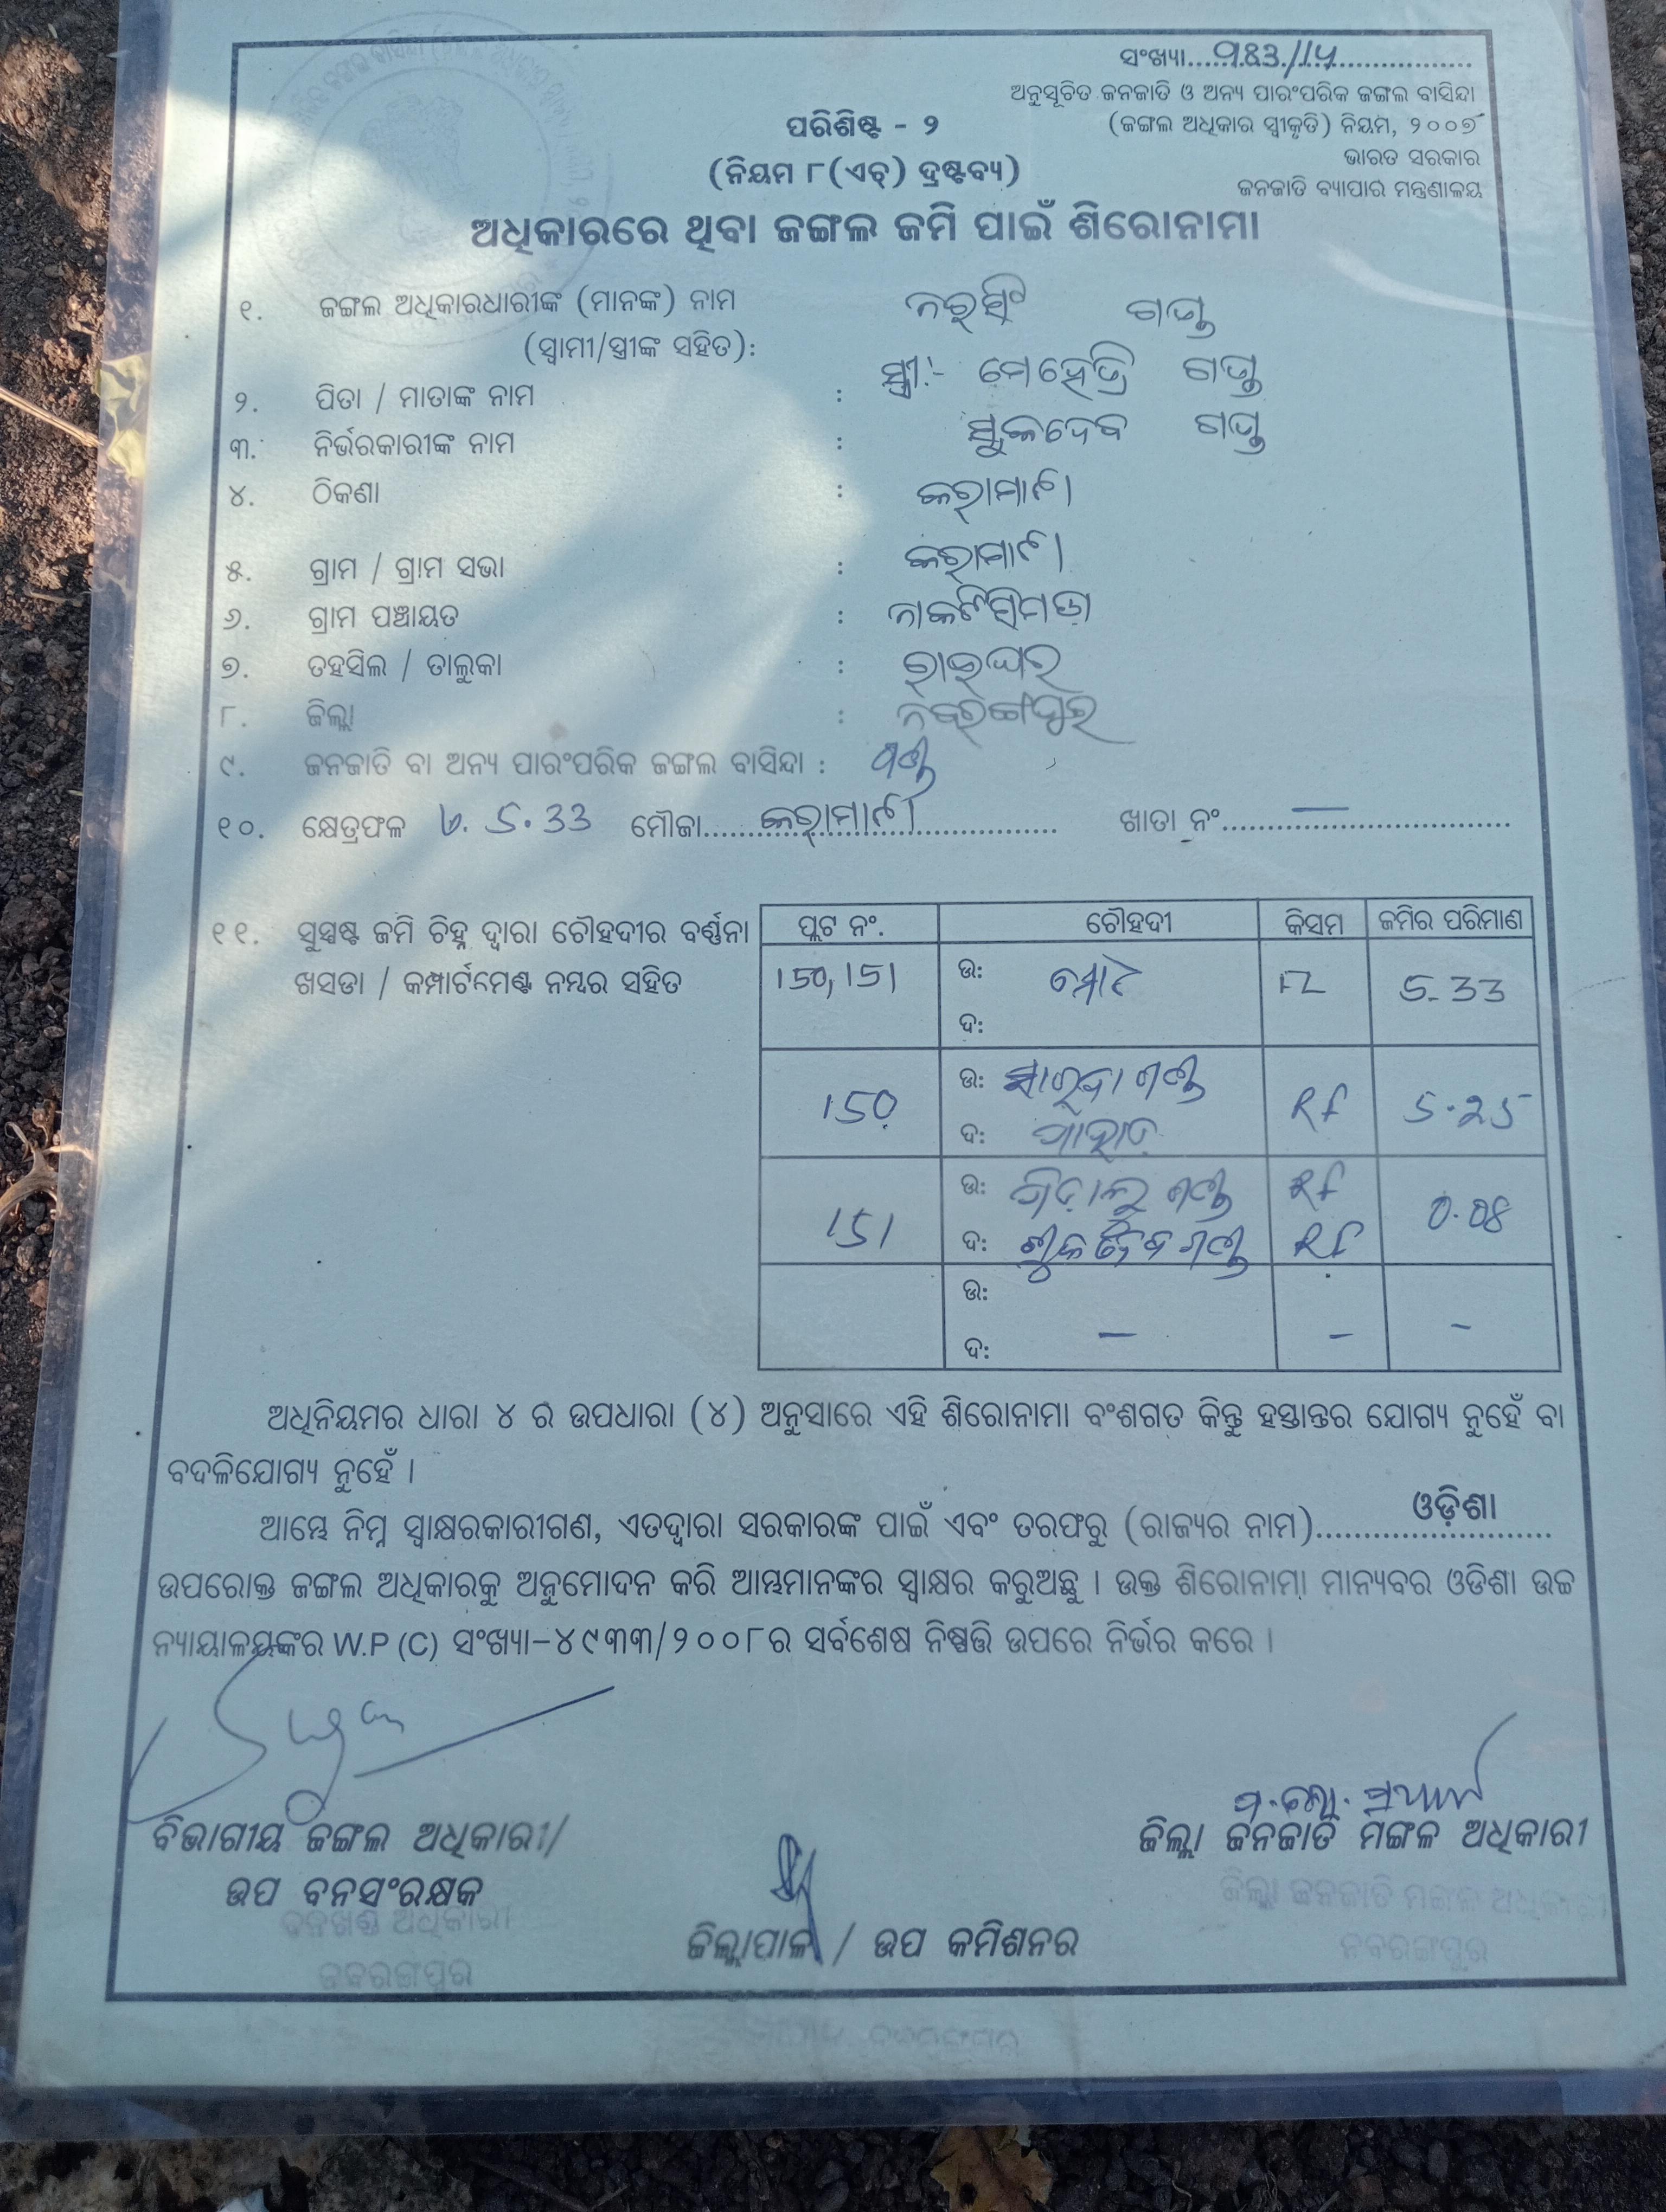 ସଂଖ୍ୟା..............................
ଅନୁସୂଚିତ ଜନଜାତି ଓ ଅନ୍ୟ ପାରଂପରିକ ଜଙ୍ଗଲ ବାସିନ୍ଦା
(ଜଙ୍ଗଲ ଅଧିକାର ସ୍ୱୀକୃତି) ନିୟମ, ୨୦୦୭
ଭାରତ ସରକାର
ଜନଜାତି ବ୍ୟାପାର ମନ୍ତ୍ରଣାଳୟ
ପରିଶିଷ୍ଟ - ୨
(ନିୟମ ୮(ଏଚ୍) ଦ୍ରଷ୍ଟବ୍ୟ)
ଅଧିକାରରେ ଥିବା ଜଙ୍ଗଲ ଜମି ପାଇଁ ଶିରୋନାମା
୧. ଜଙ୍ଗଲ ଅଧିକାରଧାରୀଙ୍କ (ମାନଙ୍କ) ନାମ ନରସିଂ ଗଣ୍ଡ
(ସ୍ୱାମୀ/ସ୍ତ୍ରୀଙ୍କ ସହିତ): ସ୍ତ୍ରୀ:- ଗଣ୍ଡ
୨. ପିତା / ମାତାଙ୍କ ନାମ : ସୁକଦେବ ଗଣ୍ଡ
୩. ନିର୍ଭରକାରୀଙ୍କ ନାମ :
୪. ଠିକଣା : କରାମାଟୀ
୫. ଗ୍ରାମ / ଗ୍ରାମ ସଭା : କରାମାଟୀ
୬. ଗ୍ରାମ ପଞ୍ଚାୟତ : ନାକଟିସିମଡା
୭. ତହସିଲ / ତାଲୁକା : ରାଇଘର
୮. ଜିଲ୍ଲା : ନବରଙ୍ଗପୁର
୯. ଜନଜାତି ବା ଅନ୍ୟ ପାରଂପରିକ ଜଙ୍ଗଲ ବାସିନ୍ଦା : ଗଣ୍ଡ
୧୦. କ୍ଷେତ୍ରଫଳ ଏ. 5.33 ମୌଜା....କରାମାଟୀ.... ଖାତା ନଂ....—....
୧୧. ସୁସ୍ପଷ୍ଟ ଜମି ଚିହ୍ନ ଦ୍ୱାରା ଚୌହଦୀର ବର୍ଣ୍ଣନା
ଖସଡା / କମ୍ପାର୍ଟମେଣ୍ଟ ନମ୍ବର ସହିତ
ପ୍ଲଟ ନଂ. ଚୌହଦୀ କିସମ ଜମିର ପରିମାଣ
150, 151 ଉ: 5.33
ଦ:
150 ଉ: ଗଣ୍ଡ Rf 5.25
ଦ: ପାହାଡ
151 ଉ: ଗଣ୍ଡ Rf 0.08
ଦ: ଶୁକଦେବ ଗଣ୍ଡ Rf
ଉ:
ଦ: — — —
ଅଧିନିୟମର ଧାରା ୪ ର ଉପଧାରା (୪) ଅନୁସାରେ ଏହି ଶିରୋନାମା ବଂଶଗତ କିନ୍ତୁ ହସ୍ତାନ୍ତର ଯୋଗ୍ୟ ନୁହେଁ ବା
ବଦଳିଯୋଗ୍ୟ ନୁହେଁ ।
ଆମ୍ଭେ ନିମ୍ନ ସ୍ୱାକ୍ଷରକାରୀଗଣ, ଏତଦ୍ୱାରା ସରକାରଙ୍କ ପାଇଁ ଏବଂ ତରଫରୁ (ରାଜ୍ୟର ନାମ)........ଓଡ଼ିଶା........
ଉପରୋକ୍ତ ଜଙ୍ଗଲ ଅଧିକାରକୁ ଅନୁମୋଦନ କରି ଆମ୍ଭମାନଙ୍କର ସ୍ୱାକ୍ଷର କରୁଅଛୁ । ଉକ୍ତ ଶିରୋନାମା ମାନ୍ୟବର ଓଡିଶା ଉଚ୍ଚ
ନ୍ୟାୟାଳୟଙ୍କର W.P (C) ସଂଖ୍ୟା-୪୯୩୩/୨୦୦୮ର ସର୍ବଶେଷ ନିଷ୍ପତ୍ତି ଉପରେ ନିର୍ଭର କରେ ।
ବିଭାଗୀୟ ଜଙ୍ଗଲ ଅଧିକାରୀ/
ଉପ ବନସଂରକ୍ଷକ
ବନଖଣ୍ଡ ଅଧିକାରୀ
ନବରଙ୍ଗପୁର
ଜିଲ୍ଲାପାଳ / ଉପ କମିଶନର
ଜିଲ୍ଲା ଜନଜାତି ମଙ୍ଗଳ ଅଧିକାରୀ
ଜିଲ୍ଲା ଜନଜାତି ମଙ୍ଗଳ ଅଧିକାରୀ
ନବରଙ୍ଗପୁର